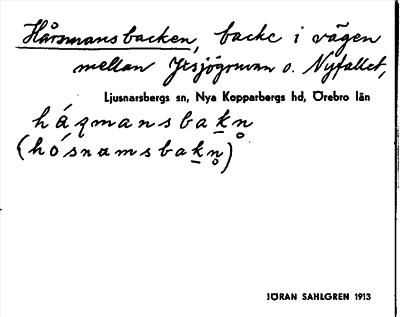 Hårsmansbacken, backe i vägen
mellan Ytsjögruvan o. Nyfallet,
Ljusnarsbergs sn, Nya Kopparbergs hd, Örebro län
háꝛmansbakn̥
(hósnamsbakn̥)
JÖRAN SAHLGREN 1913